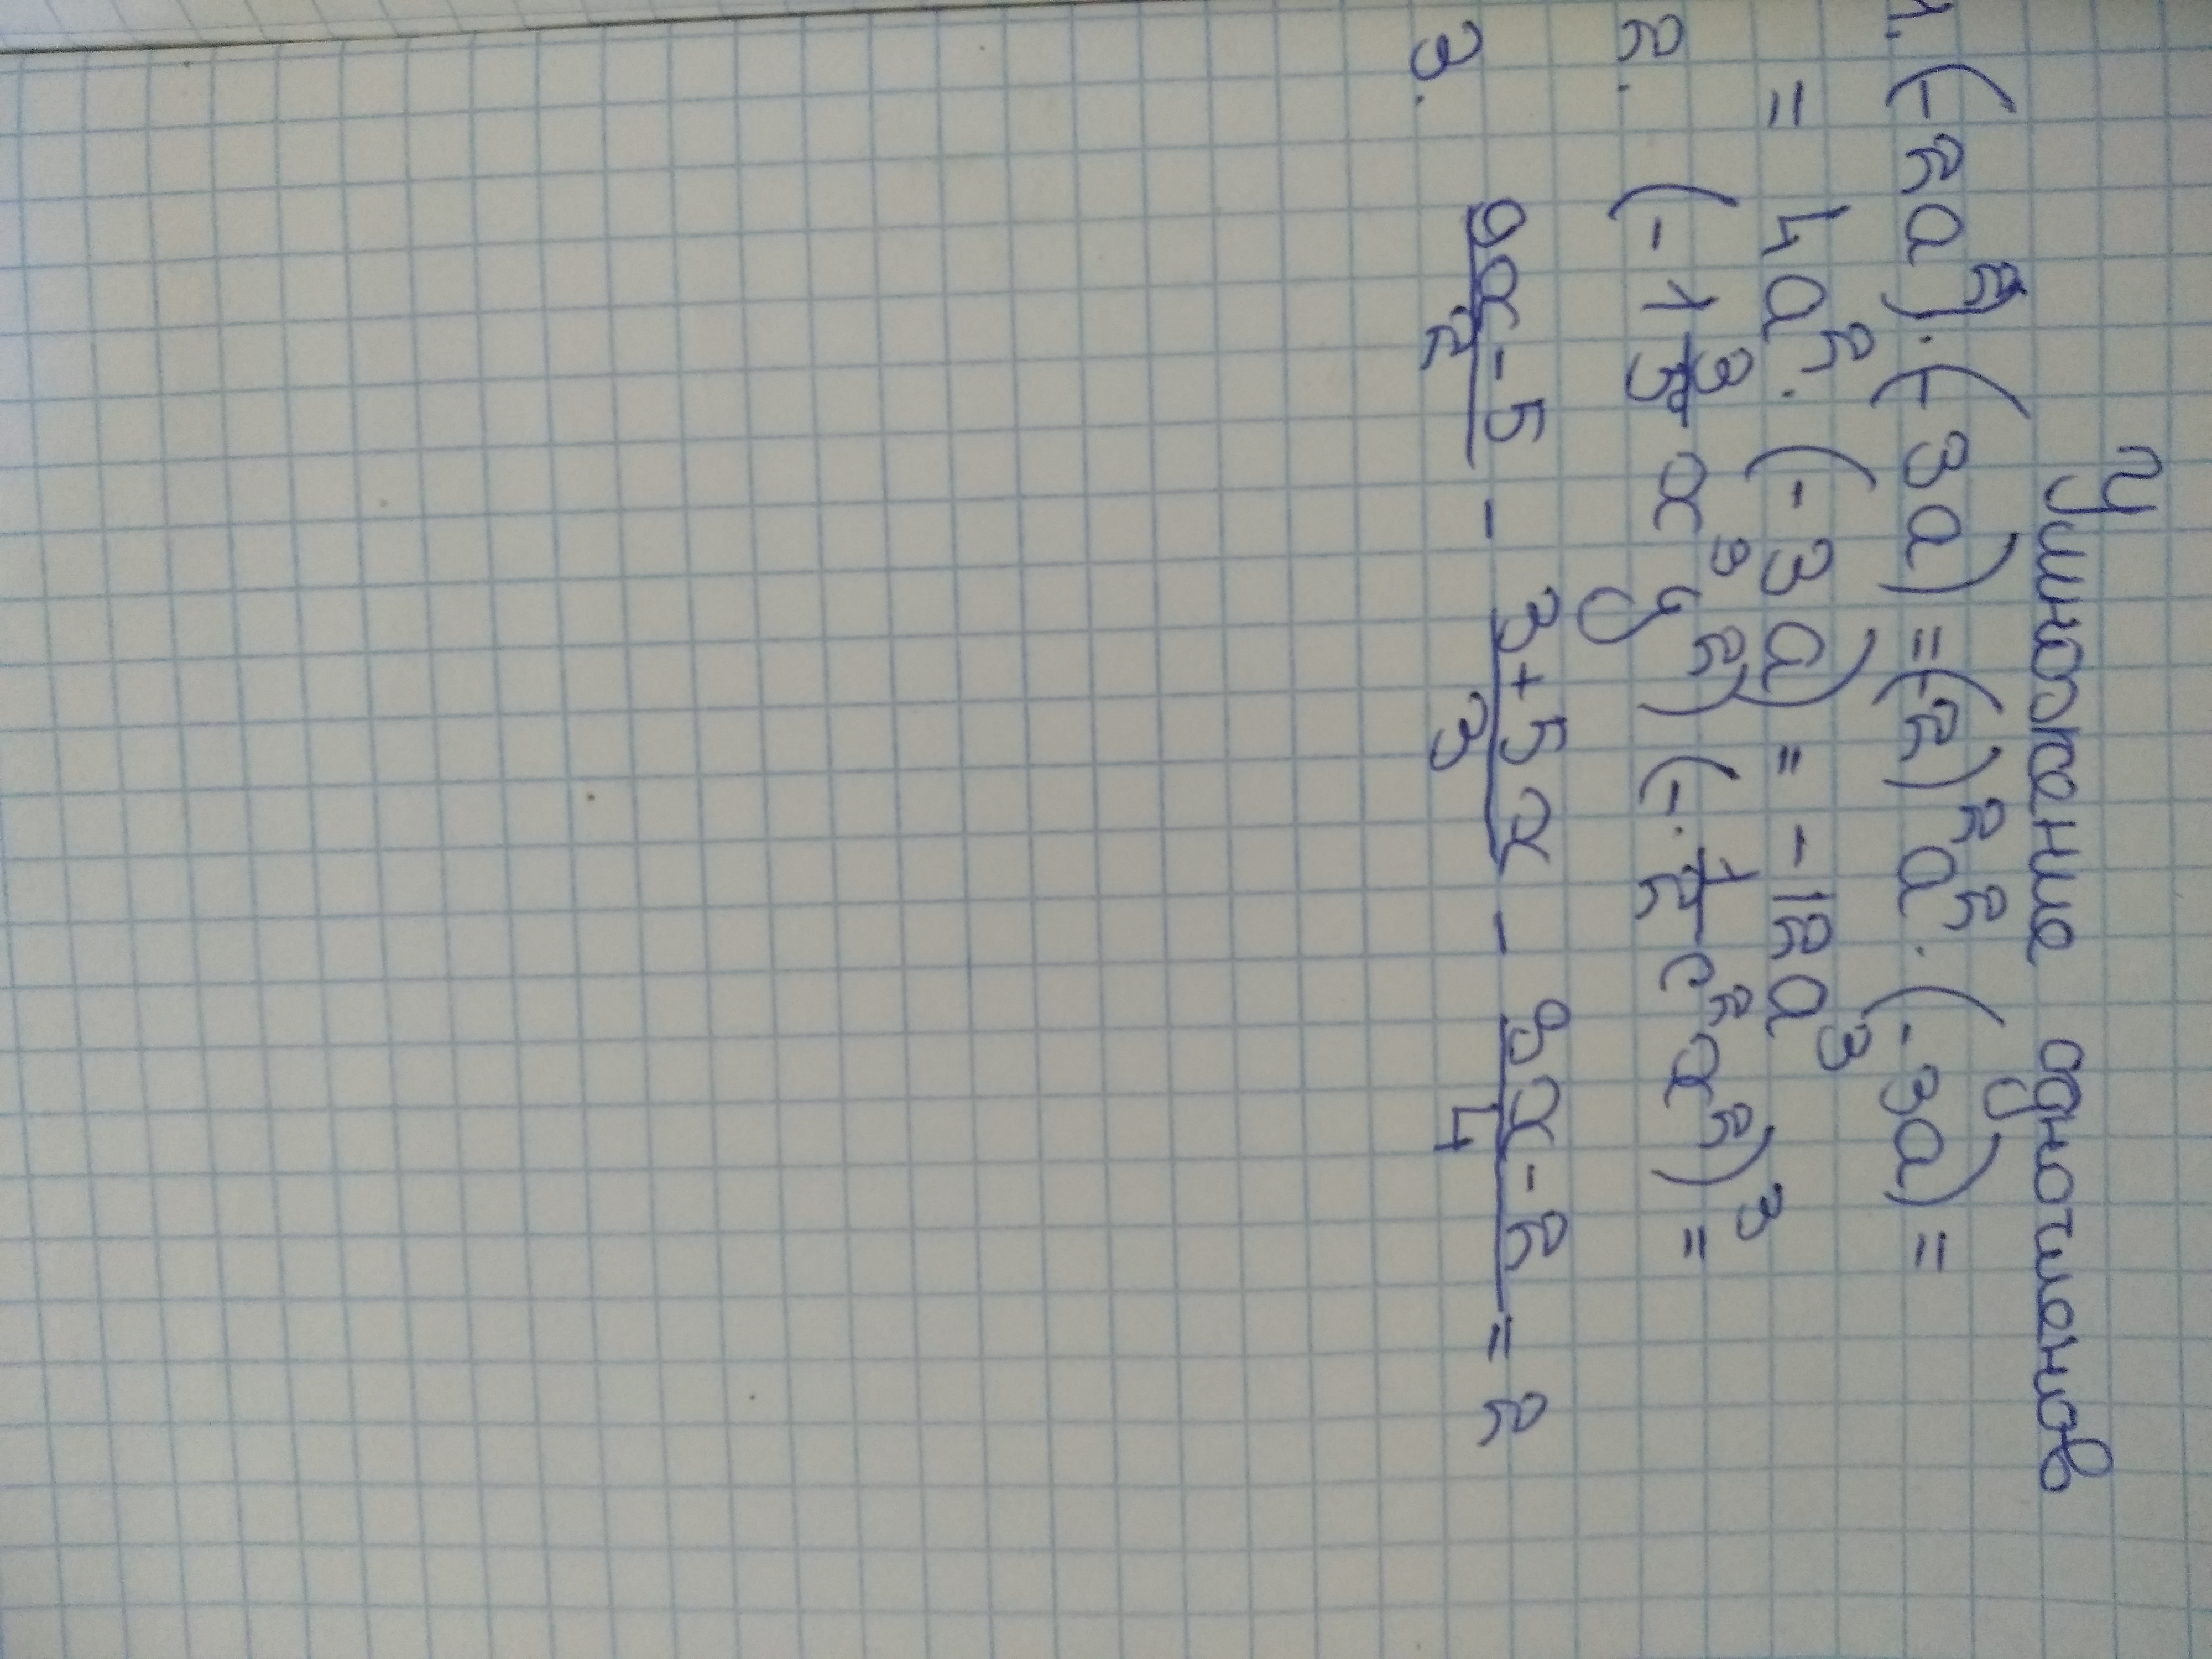 Умножение одночленов
1. (-2a)²·(-3a) = (-2)²a²·(-3a) =
= 4a²·(-3a) = -12a³
2. (-1 3/5 x³y²)(-1/2 c²x²)³ =
3. (9x-5)/2 - (3+5x)/3 - (8x-2)/4 = 2